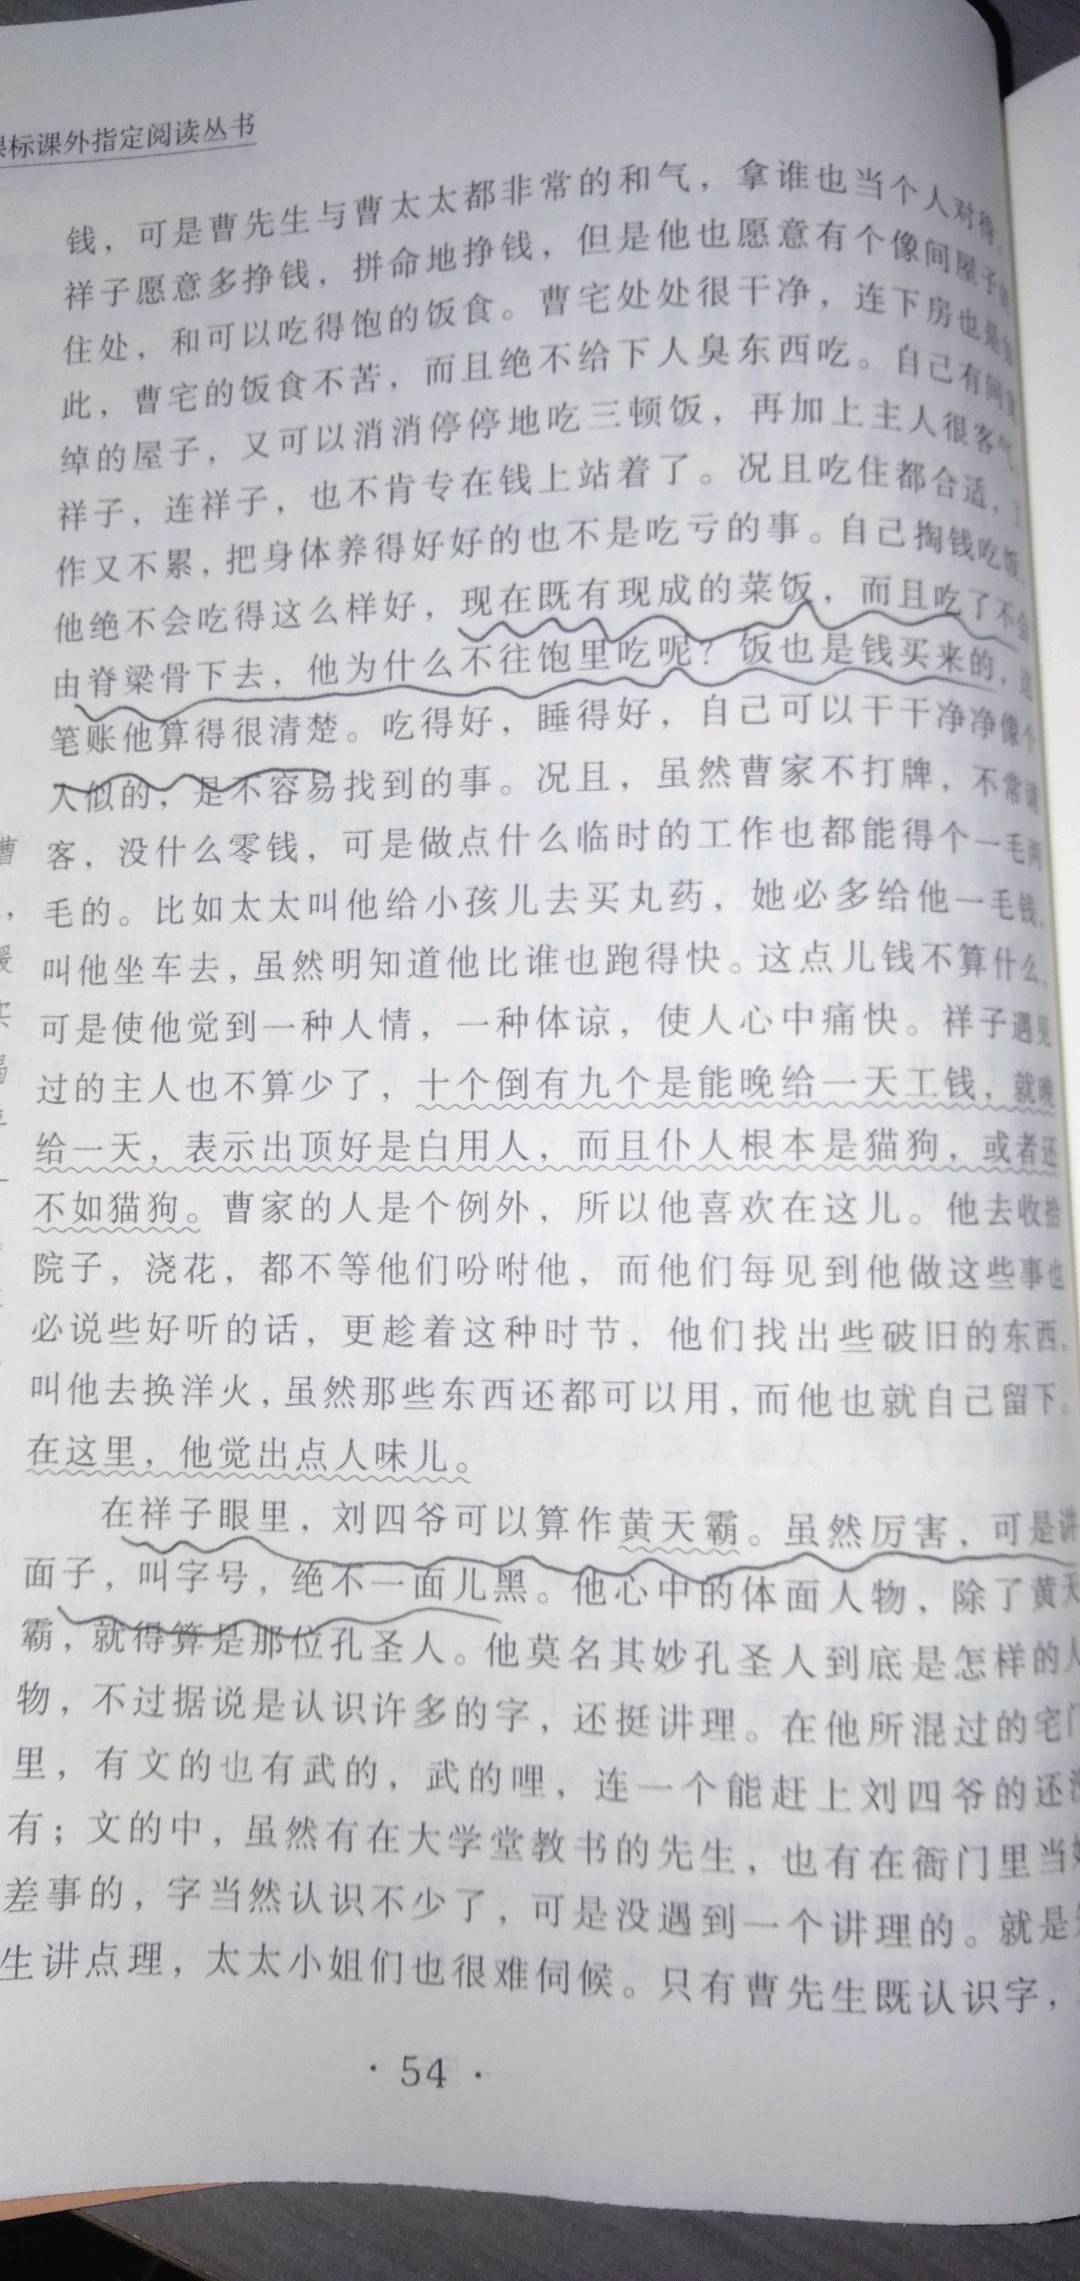 课标课外指定阅读丛书
钱，可是曹先生与曹太太都非常的和气，拿谁也当个人对待。
祥子愿意多挣钱，拼命地挣钱，但是他也愿意有个像间屋子的
住处，和可以吃得饱的饭食。曹宅处处很干净，连下房也是如
此，曹宅的饭食不苦，而且绝不给下人臭东西吃。自己有间宽
绰的屋子，又可以消消停停地吃三顿饭，再加上主人很客气，
祥子，连祥子，也不肯专在钱上站着了。况且吃住都合适，工
作又不累，把身体养得好好的也不是吃亏的事。自己掏钱吃饭，
他绝不会吃得这么样好，现在既有现成的菜饭，而且吃了不会
由脊梁骨下去，他为什么不往饱里吃呢？饭也是钱买来的，这
笔账他算得很清楚。吃得好，睡得好，自己可以干干净净像个
人似的，是不容易找到的事。况且，虽然曹家不打牌，不常请
客，没什么零钱，可是做点什么临时的工作也都能得个一毛两
毛的。比如太太叫他给小孩儿去买丸药，她必多给他一毛钱，
叫他坐车去，虽然明知道他比谁也跑得快。这点儿钱不算什么，
可是使他觉到一种人情，一种体谅，使人心中痛快。祥子遇见
过的主人也不算少了，十个倒有九个是能晚给一天工钱，就晚
给一天，表示出顶好是白用人，而且仆人根本是猫狗，或者还
不如猫狗。曹家的人是个例外，所以他喜欢在这儿。他去收拾
院子，浇花，都不等他们吩咐他，而他们每见到他做这些事也
必说些好听的话，更趁着这种时节，他们找出些破旧的东西，
叫他去换洋火，虽然那些东西还都可以用，而他也就自己留下。
在这里，他觉出点人味儿。
在祥子眼里，刘四爷可以算作黄天霸。虽然厉害，可是讲
面子，叫字号，绝不一面儿黑。他心中的体面人物，除了黄天
霸，就得算是那位孔圣人。他莫名其妙孔圣人到底是怎样的人
物，不过据说是认识许多的字，还挺讲理。在他所混过的宅门
里，有文的也有武的，武的哩，连一个能赶上刘四爷的还没
有；文的中，虽然有在大学堂教书的先生，也有在衙门里当好
差事的，字当然认识不少了，可是没遇到一个讲理的。就是
生讲点理，太太小姐们也很难伺候。只有曹先生既认识字，
· 54 ·